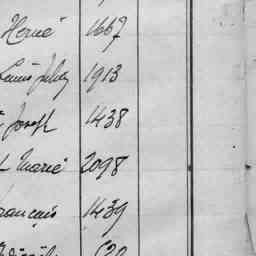 Hervé 1667
Louis Jules 1913
Joseph 1438
Marie 2098
François 1439